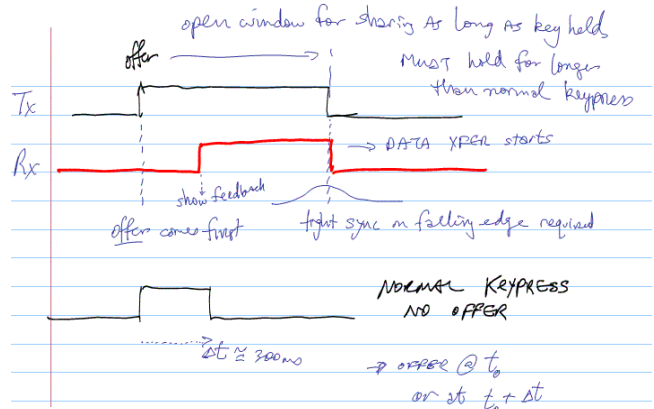 open window for sharing As long As key helds
offer
MUST hold for longer
than normal keypress
Tx
Rx
→ DATA XFER starts
show feedback
offer comes first
tight sync on falling edge required
NORMAL KEYPRESS
NO OFFER
Δt ≅ 300ms
→ OFFER @ t₀
or at t₀ + Δt